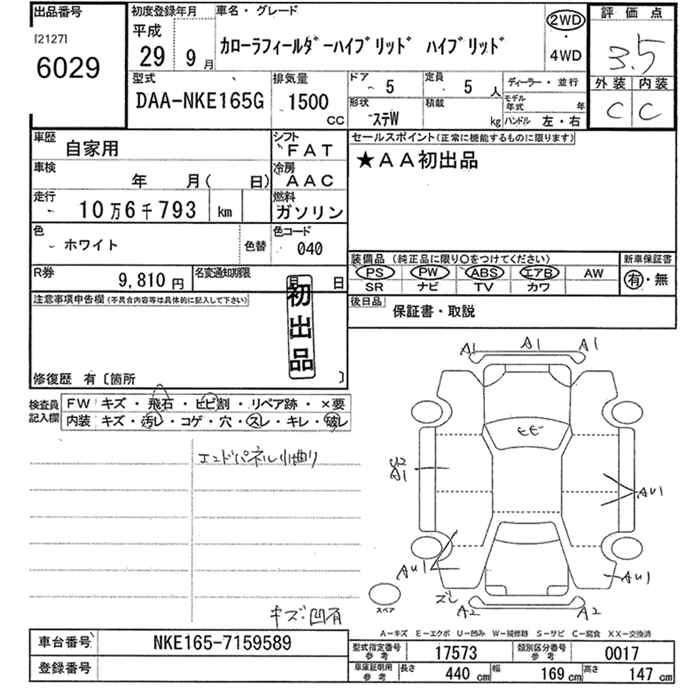 出品番号
[2127]
6029
初度登録年月
平成
29 9月
車名・グレード
カローラフィールダーハイブリッド ハイブリッド
2WD
・
4WD
評価点
3.5
外装 内装
C C
型式
DAA-NKE165G
排気量
1500
CC
ドア
5
定員
5 人
形状
ステW
積載
kg
ディーラー・並行
モデル年式 年
ハンドル 左・右
車歴
自家用
シフト
FAT
車検
年 月( 日)
冷房
AAC
走行
10万6千793 km
燃料
ガソリン
色
ホワイト
色替
色コード
040
R券
9,810円
名変通知期限
月 日
セールスポイント(正常に機能するものに限ります)
★AA初出品
装備品 (純正品に限り○をつけてください)
PS PW ABS エアB AW
SR ナビ TV カワ
新車保証書
有・無
後日品
保証書・取説
注意事項申告欄(不具合内容等は具体的に記入して下さい)
初出品
修復歴 有〔箇所 〕
検査員記入欄
FW キズ・飛石・ヒビ割・リペア跡・×要
内装 キズ・汚レ・コゲ・穴・スレ・キレ・破レ
エンドパネル小曲り
キズ・凹有
A1 A1 A1
ヒビ
U2
A1
AU1
AU1
AU1
ズレ
A2 A2
スペア
A−キズ E−エクボ U−凹み W−補修跡 S−サビ C−腐食 XX−交換済
車台番号
NKE165-7159589
登録番号
型式指定番号 参考
17573
類別区分番号 参考
0017
車庫証明用 参考
長さ 440 cm 幅 169 cm 高さ 147 cm